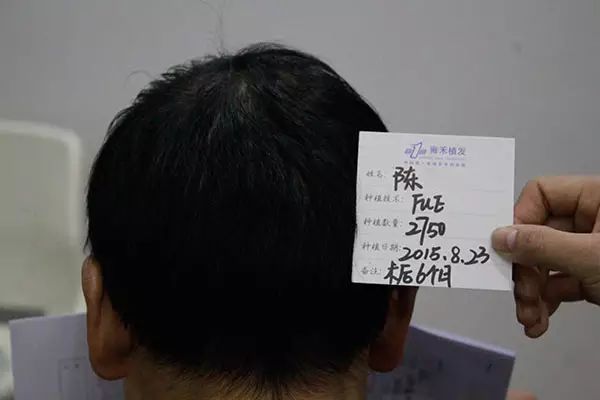 雍禾植发
姓名: 陈
种植技术: FUE
种植数量: 2750
种植日期: 2015.8.23
备注: 术后6个月